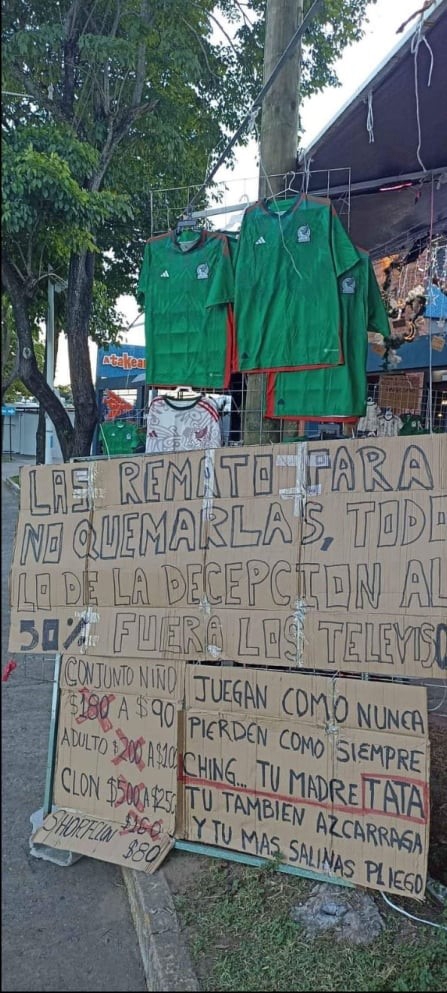 Atakear
adidas
LAS REMATO PARA
NO QUEMARLAS, TODO
LO DE LA DECEPCION AL
50% FUERA LOS TELEVISO
CONJUNTO NIÑO
$180 A $90
ADULTO $200 A $100
CLON $500 A $250
SHORT CLON $160
$80
JUEGAN COMO NUNCA
PIERDEN COMO SIEMPRE
CHING... TU MADRE TATA
TU TAMBIEN AZCARRAGA
Y TU MAS SALINAS PLIEGO